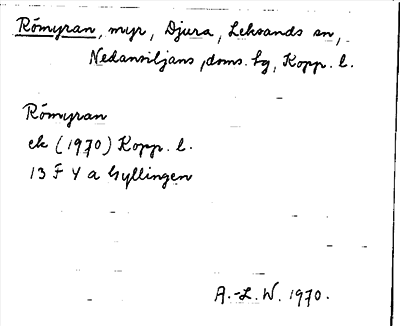 Römyran, myr, Djura, Leksands sn,
Nedansiljans, doms. tg, Kopp. l.
Römyran
ek (1970) Kopp. l.
13 F 4 a Gyllingen
A.-L. W. 1970.